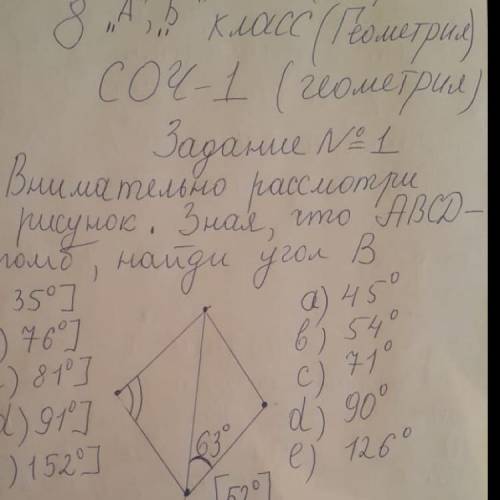 8 „А", „Б" класс (Геометрия)
СОЧ-1 (геометрия)
Задание №1
Внимательно рассмотри
рисунок. Зная, что ABCD-
ромб, найди угол В
35°]
) 76°]
c) 81°]
d) 91°]
) 152°]
63°
[52°]
a) 45°
b) 54°
c) 71°
d) 90°
e) 126°